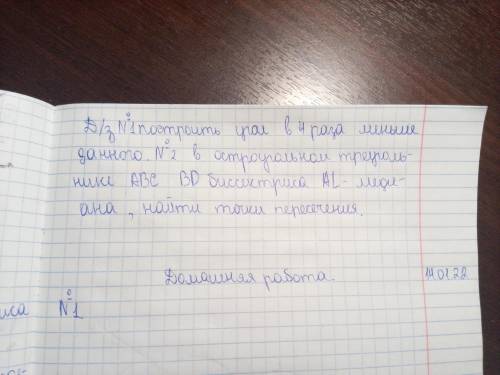 Д/з №1 построить угол в 4 раза меньше
данного. №2 в остроугольном треуголь-
нике ABC BD биссектриса AL - меди-
ана, найти точки пересечения.
Домашняя работа.
14.01.22
№1